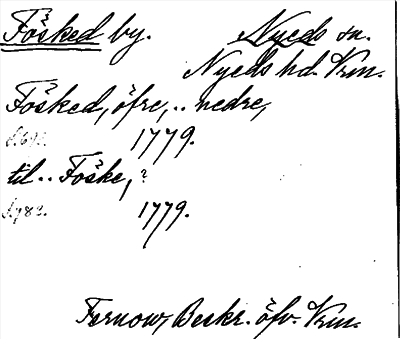 Fösked by. Nyeds sn.
Nyeds hd. Vrm.
Fösked, öfre, .. nedre,
1779.
til .. Föske, ?
1779.
Fernow, Beskr. öfv. Vrm.